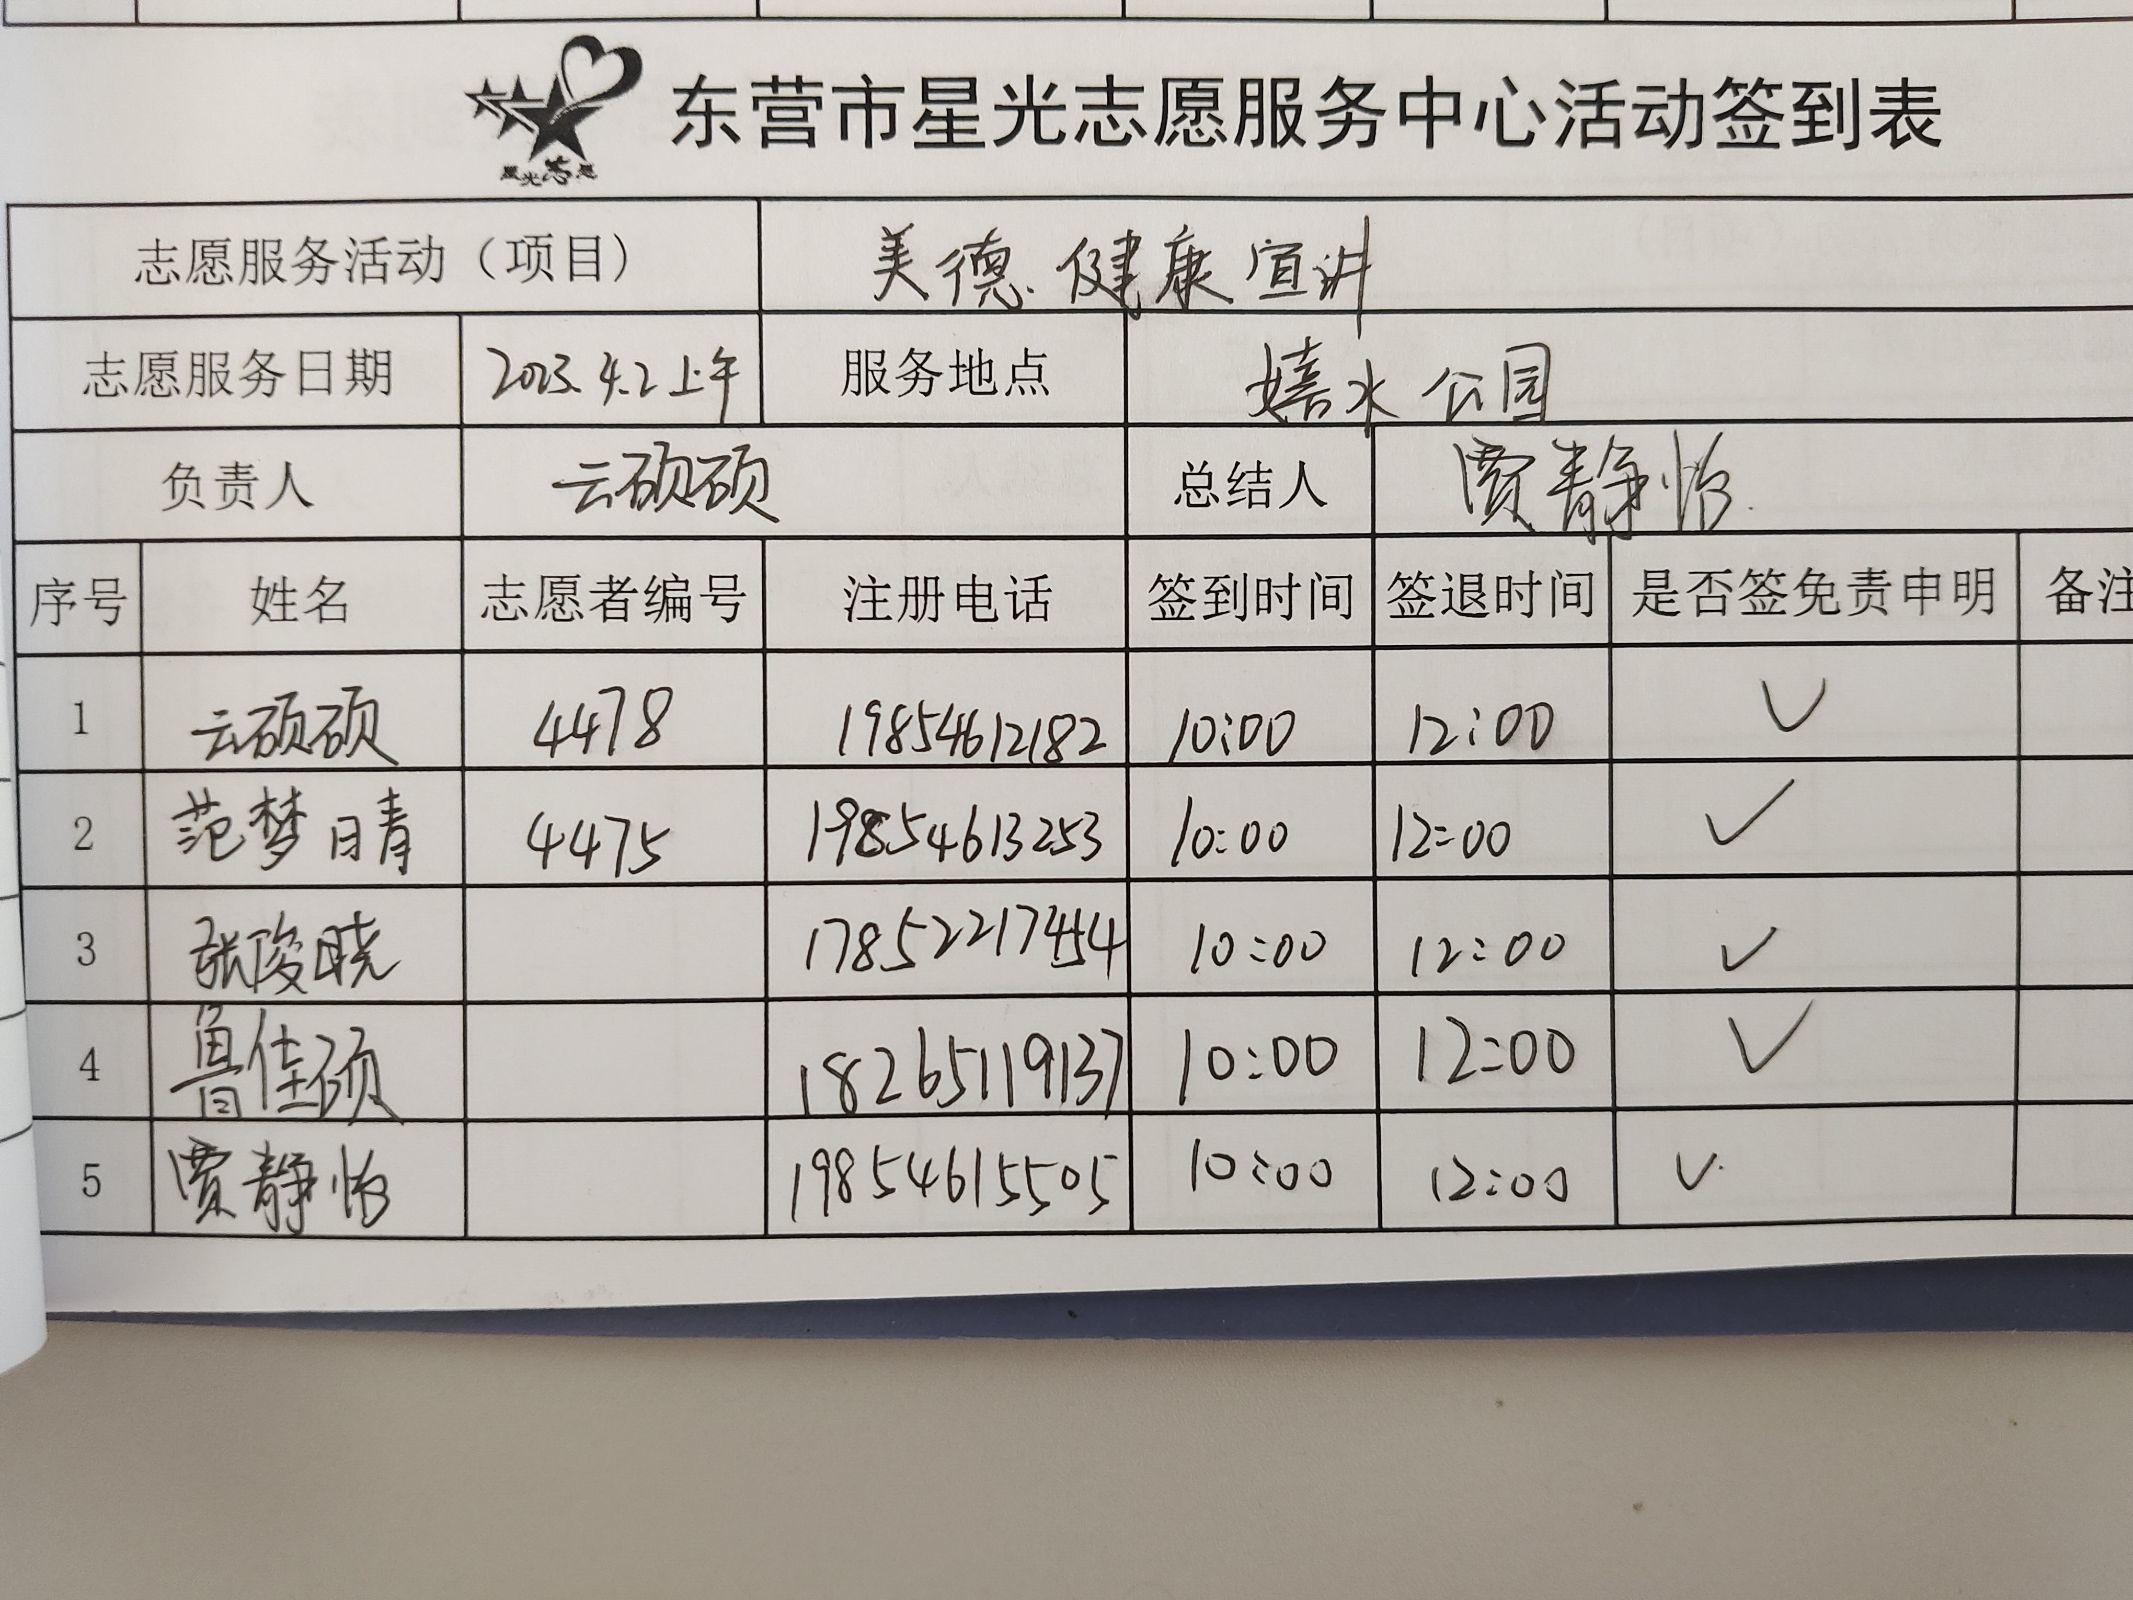 星光志愿
东营市星光志愿服务中心活动签到表
志愿服务活动（项目） 美德健康宣讲
志愿服务日期 2023.4.2上午 服务地点 嬉水公园
负责人 云硕硕 总结人 贾静怡
序号 姓名 志愿者编号 注册电话 签到时间 签退时间 是否签免责申明 备注
1 云硕硕 4478 19854612182 10:00 12:00 ✓
2 范梦晴 4475 19854613253 10:00 12:00 ✓
3 张俊晓 17852217454 10:00 12:00 ✓
4 鲁佳硕 18265119137 10:00 12:00 ✓
5 贾静怡 19854615505 10:00 12:00 ✓